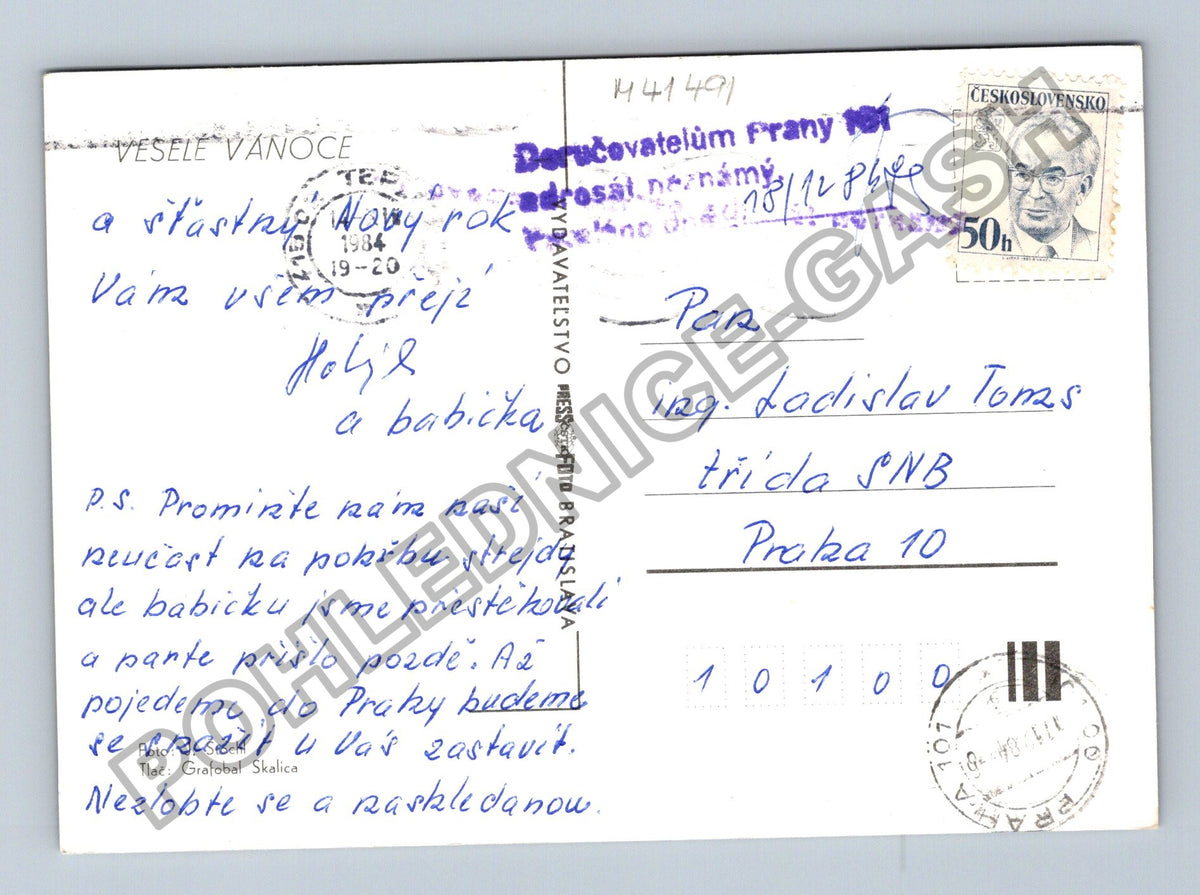 M 41 491
VESELÉ VÁNOCE
a šťastný Nový rok
Vám všem přejí
a babička
P.S. Promiňte nám naší
neučast na pohřbu strejdy
ale babičku jsme přestěhovali
a parte přišlo pozdě. Až
pojedeme do Prahy budeme
se snažit u Vás zastavit.
Nezlobte se a naskledanou.
Foto: J. Štochl
Tlač: Grafobal Skalica
1984
19-20
VYDAVATEĽSTVO PRESSFOTO BRATISLAVA
Doručovatelům Prahy 101
adresát neznámý.
18/12 84
ČESKOSLOVENSKO
50h
Pan
ing. Ladislav Toms
třída SNB
Praha 10
1 0 1 0 0
PRAHA 101
POHLEDNICE-GASH